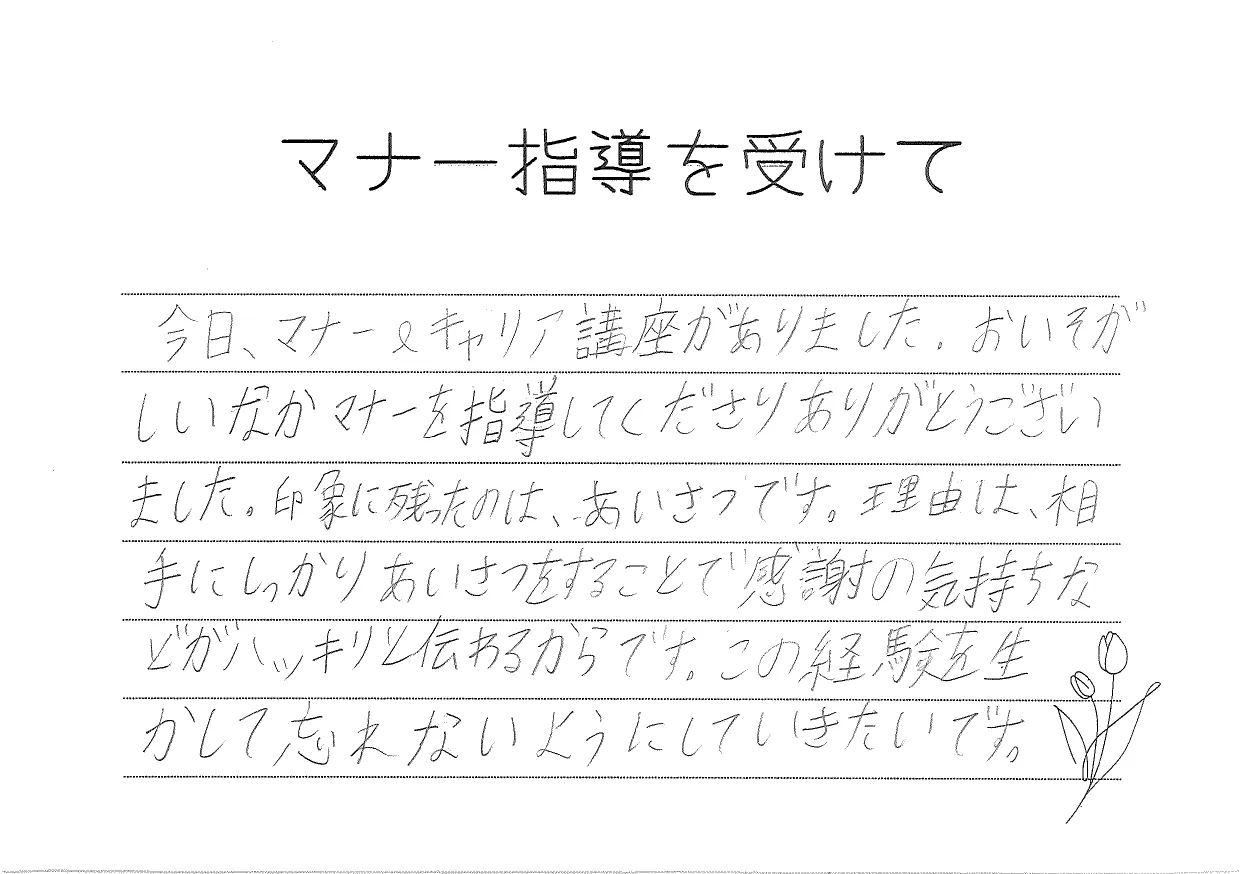 マナー指導を受けて
今日、マナー&キャリア講座がありました。おいそが
しいなかマナーを指導してくださりありがとうござい
ました。印象に残ったのは、あいさつです。理由は、相
手にしっかりあいさつをすることで感謝の気持ちな
どがハッキリと伝わるからです。この経験を生
かして忘れないようにしていきたいです。